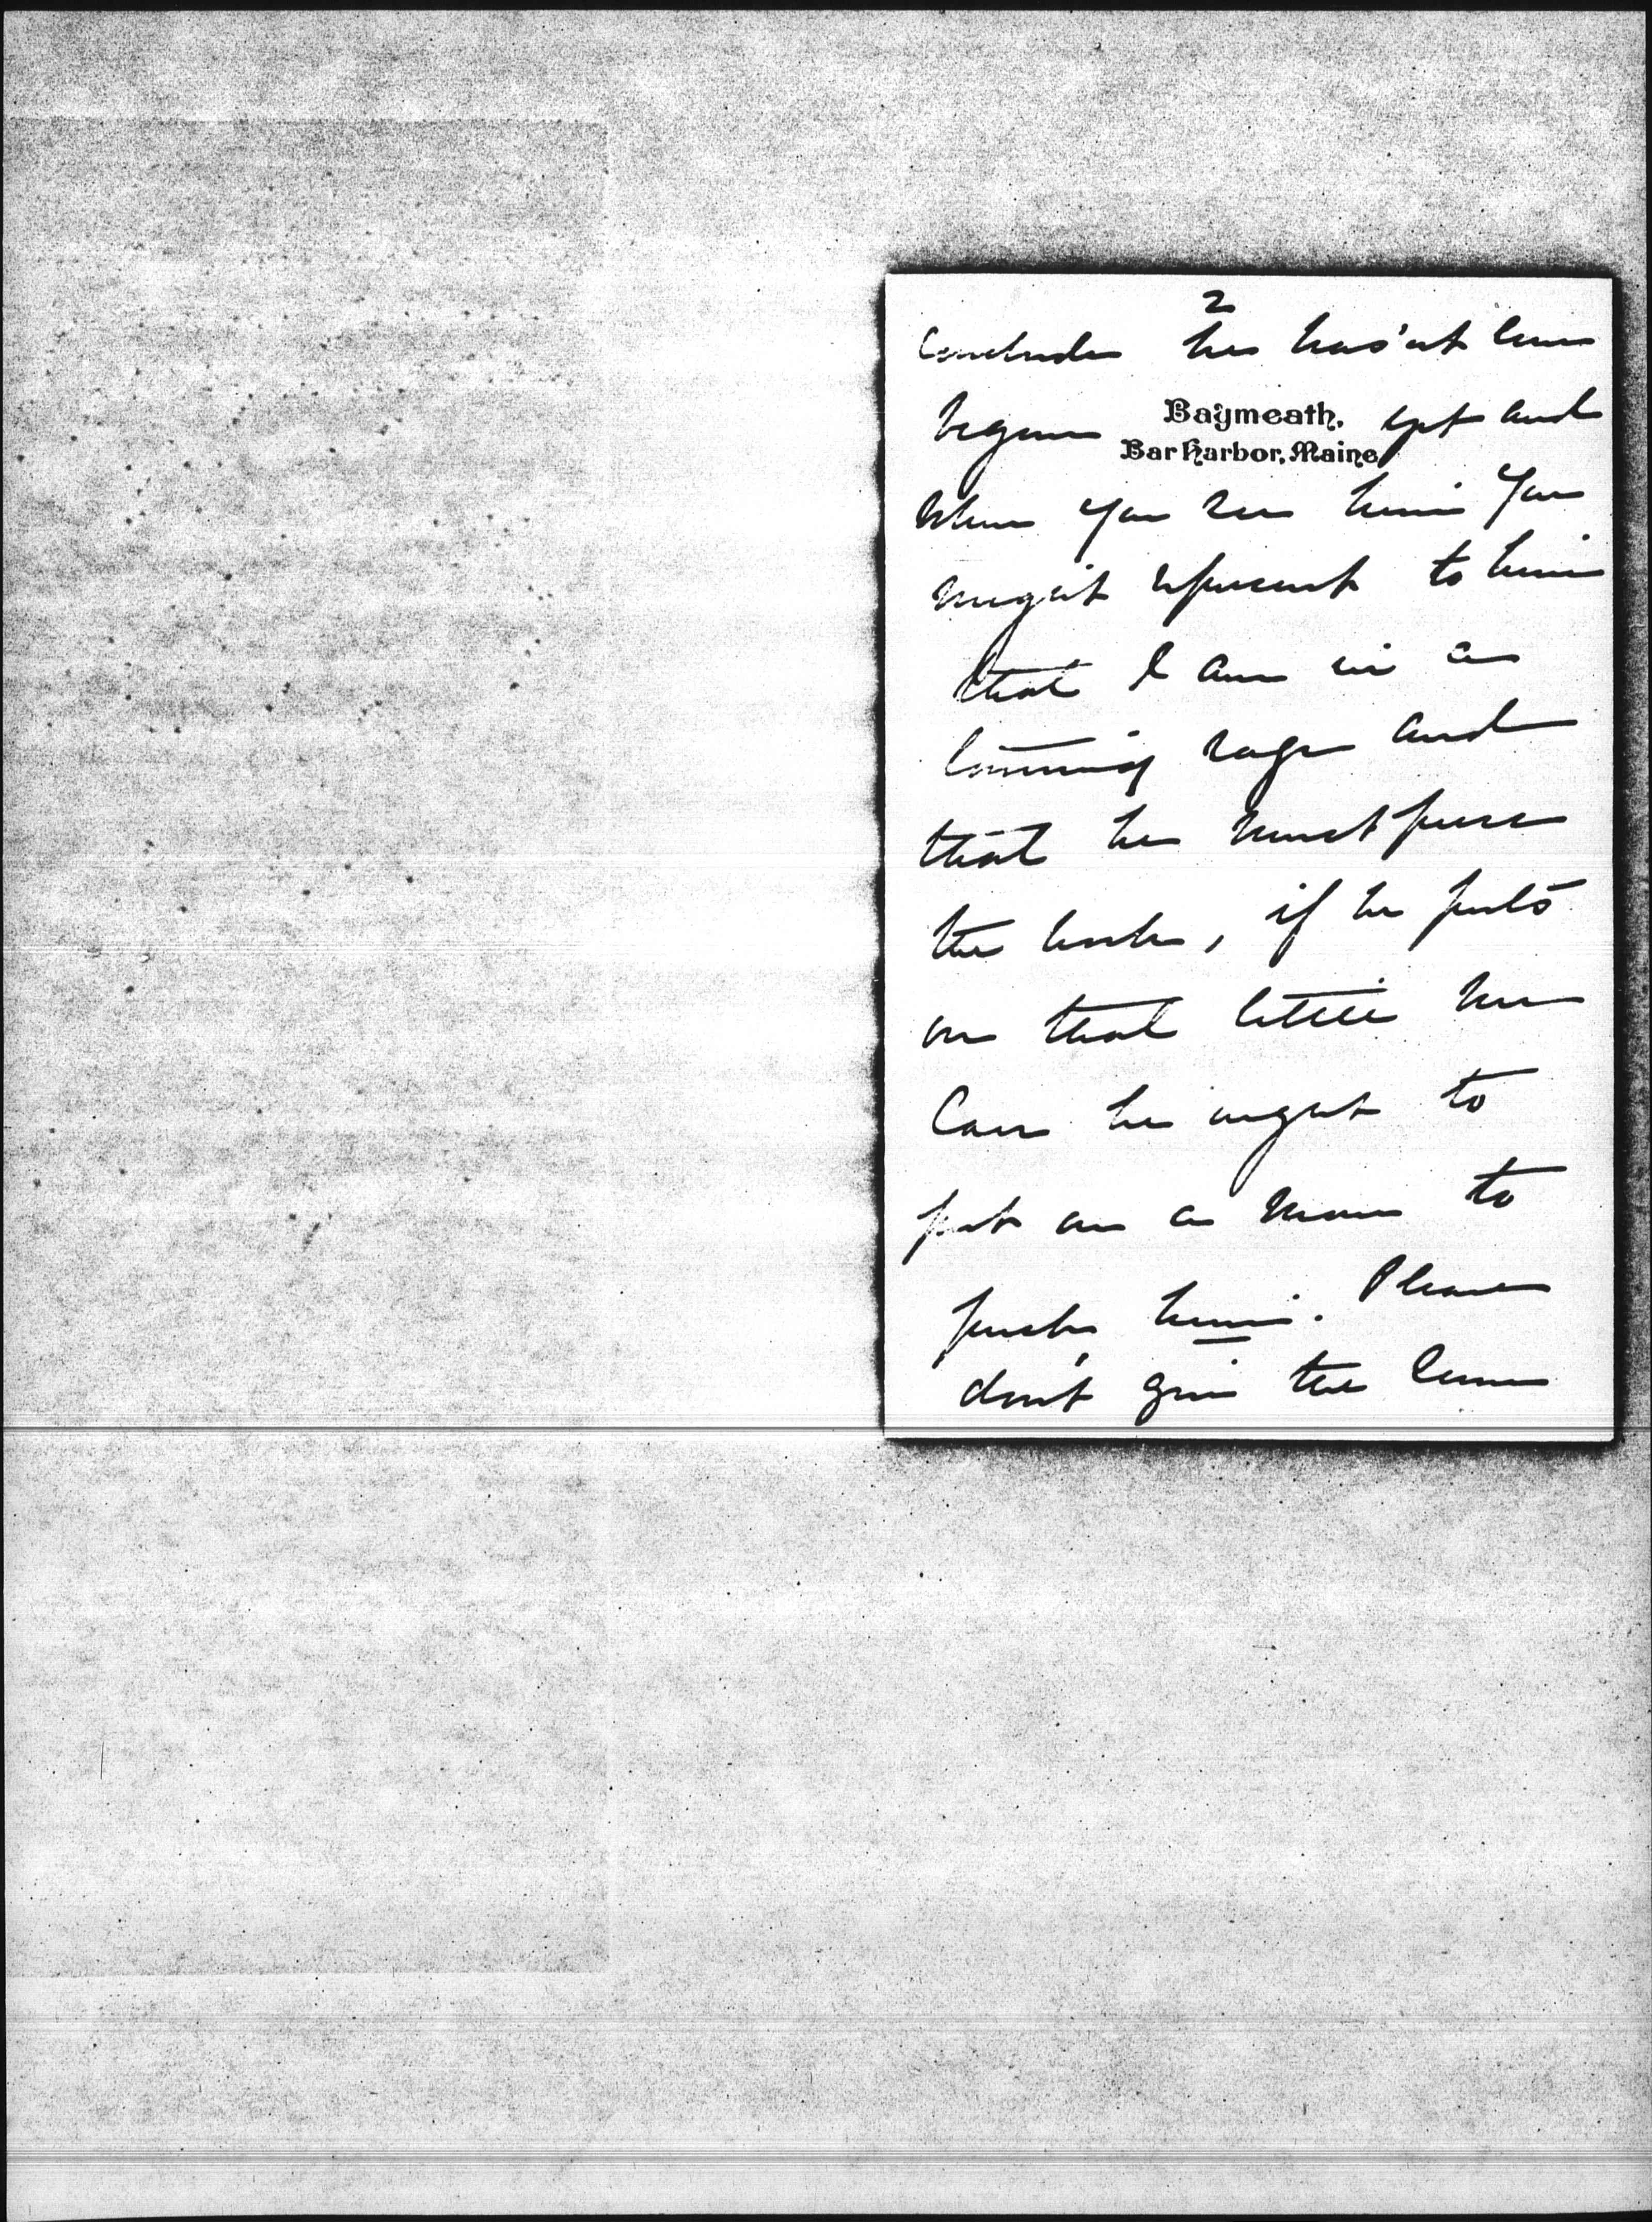 2
conclude he has'nt even
Baymeath,
begun yet and
Bar Harbor, Maine
when you see him you
might represent to him
that I am in a
towering rage and
that he must push
the work, if he puts
on that little
he ought to
put on a man to
push him. Please
don't give the